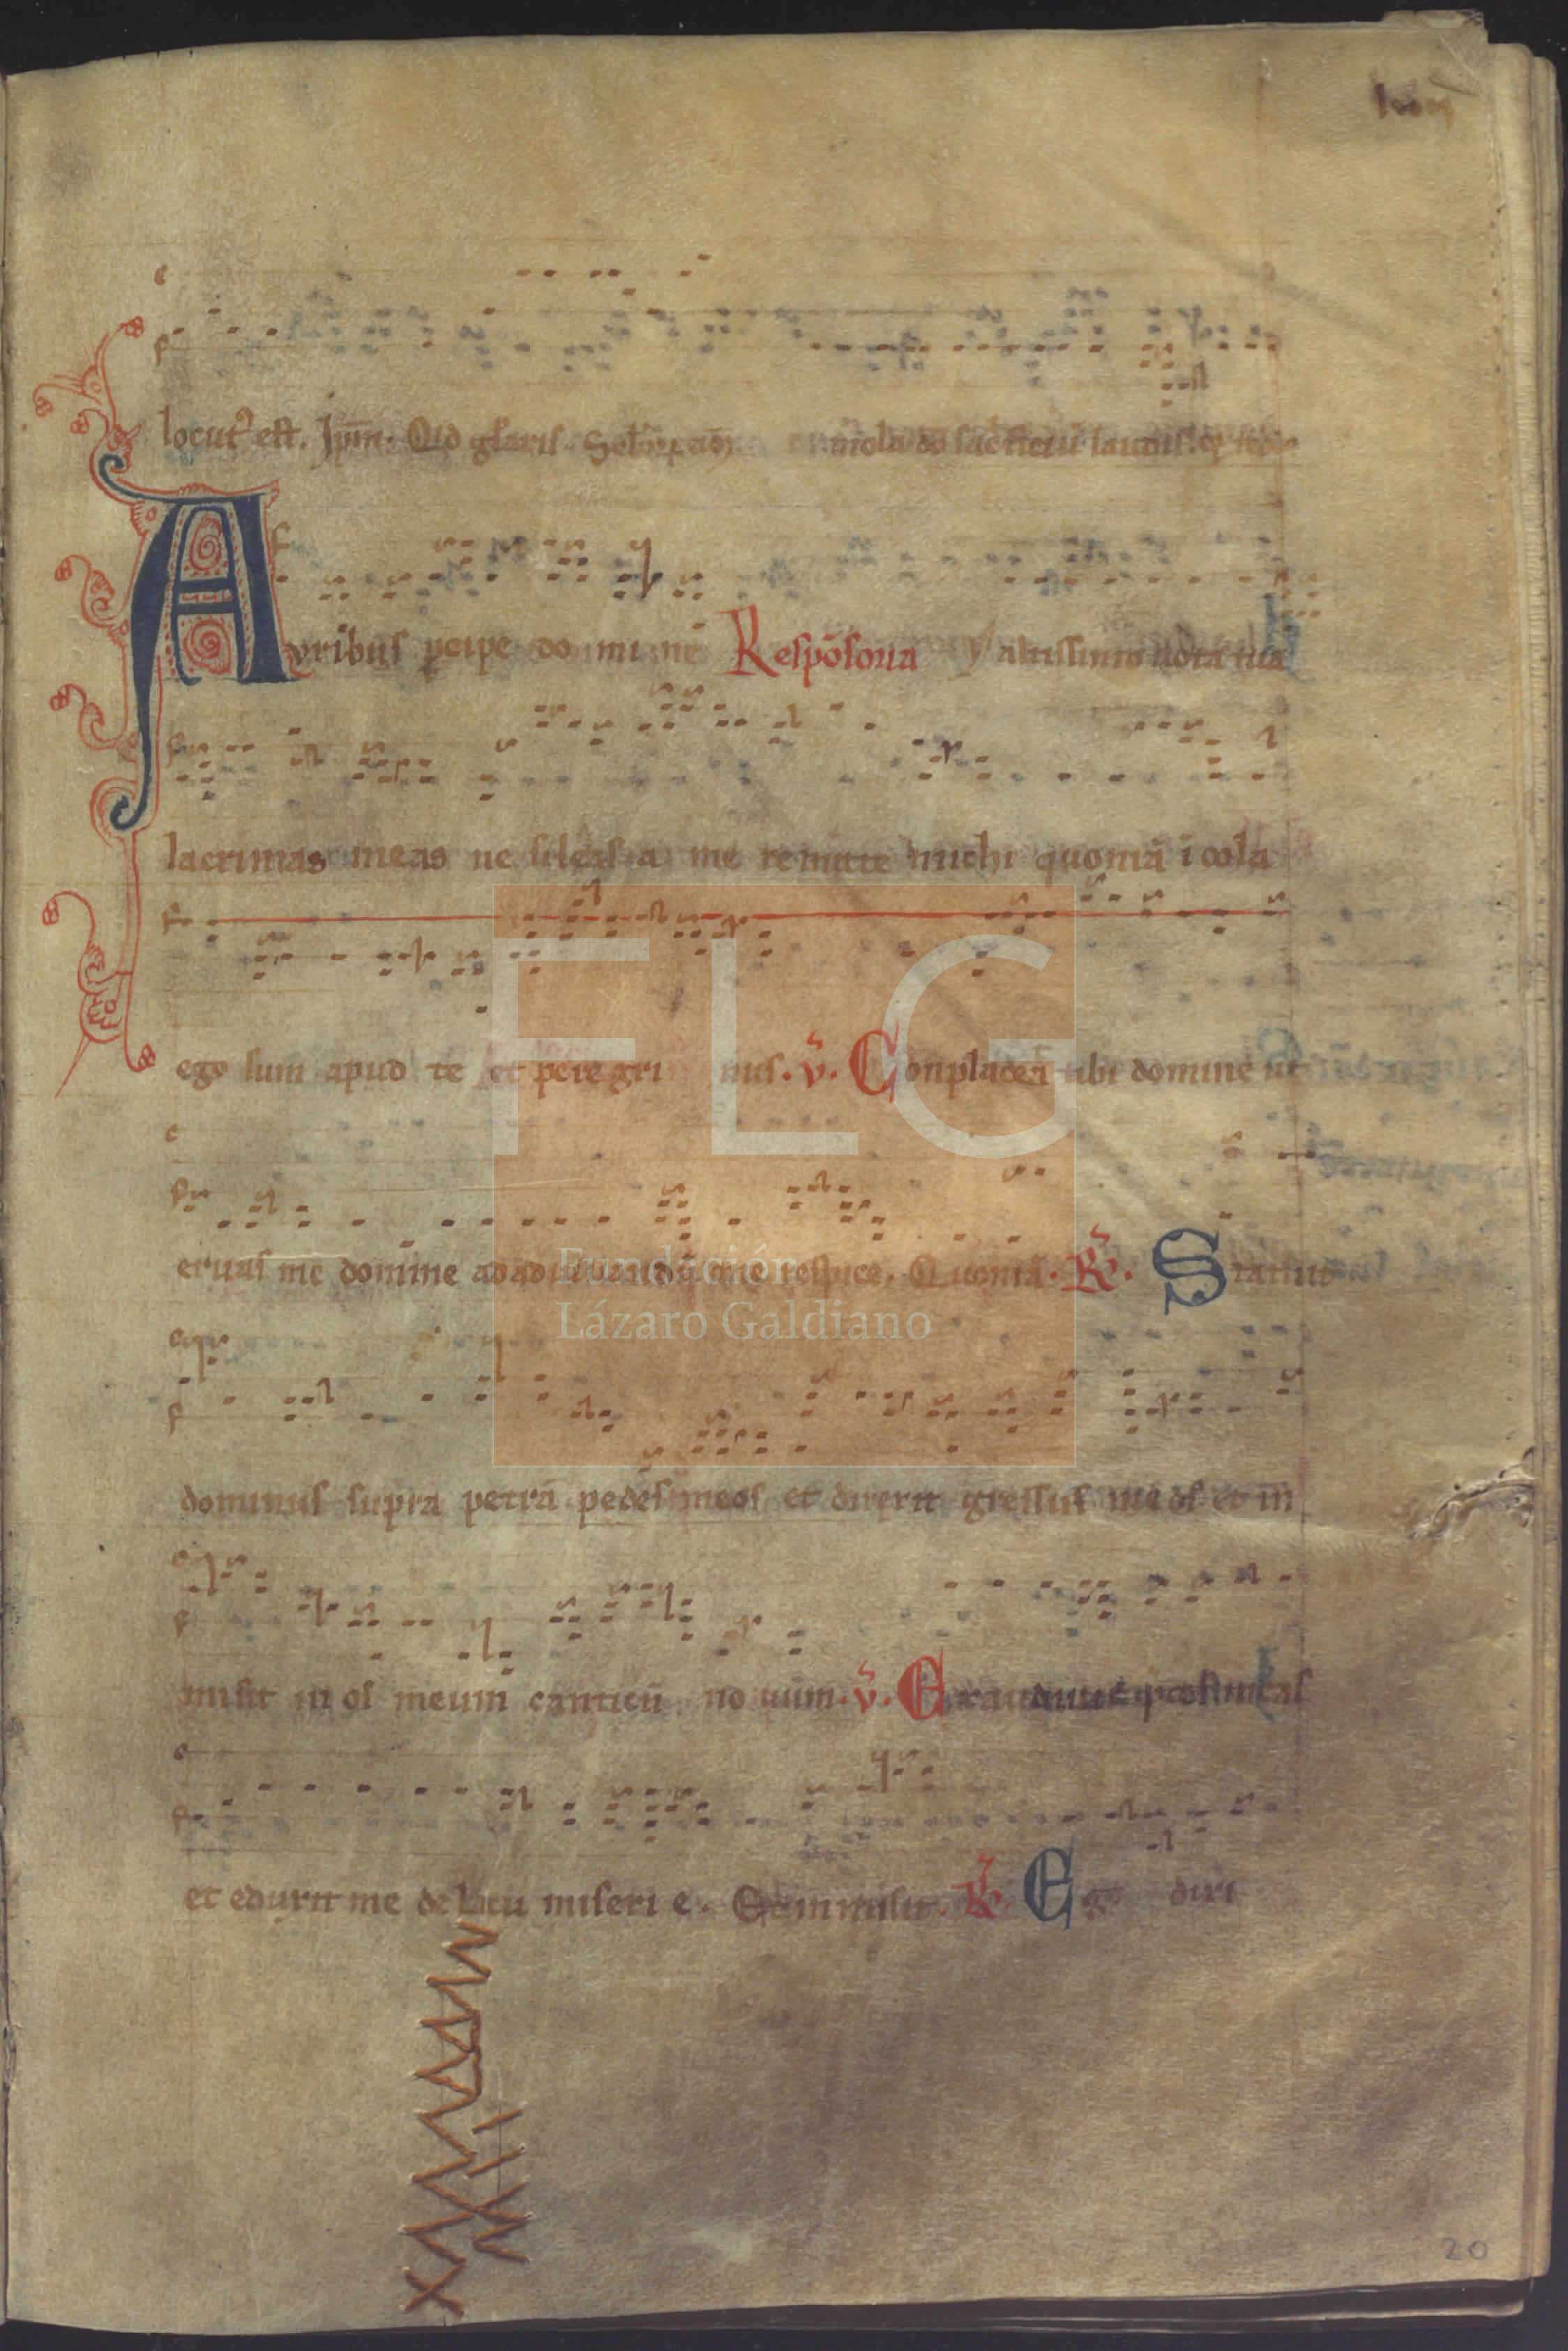 locutꝰ est. Jpm̄. Qid gl̄aris. Im̄ola do sacͥficiū laudis. et redde
Auribus ꝑcipe do mi ne Respōsoria altissimo uota tua
lacrimas meas ne sileas a me remitte michi quoniā icola
ego sum apud te et peregri nus. v̄. Conplacea tibi domine ut
eruas me domine ad adiuuandū me respice. Quoniā. R̄. Statuit
dominus supra petrā pedes meos et direxit gressus meos et in
misit in os meum canticū no uum. v̄. Exaudiuit preces meas
et eduxit me de lacu miseri e. Et inmisit. R̄. Ego dixi
20
FLG
Fundación
Lázaro Galdiano